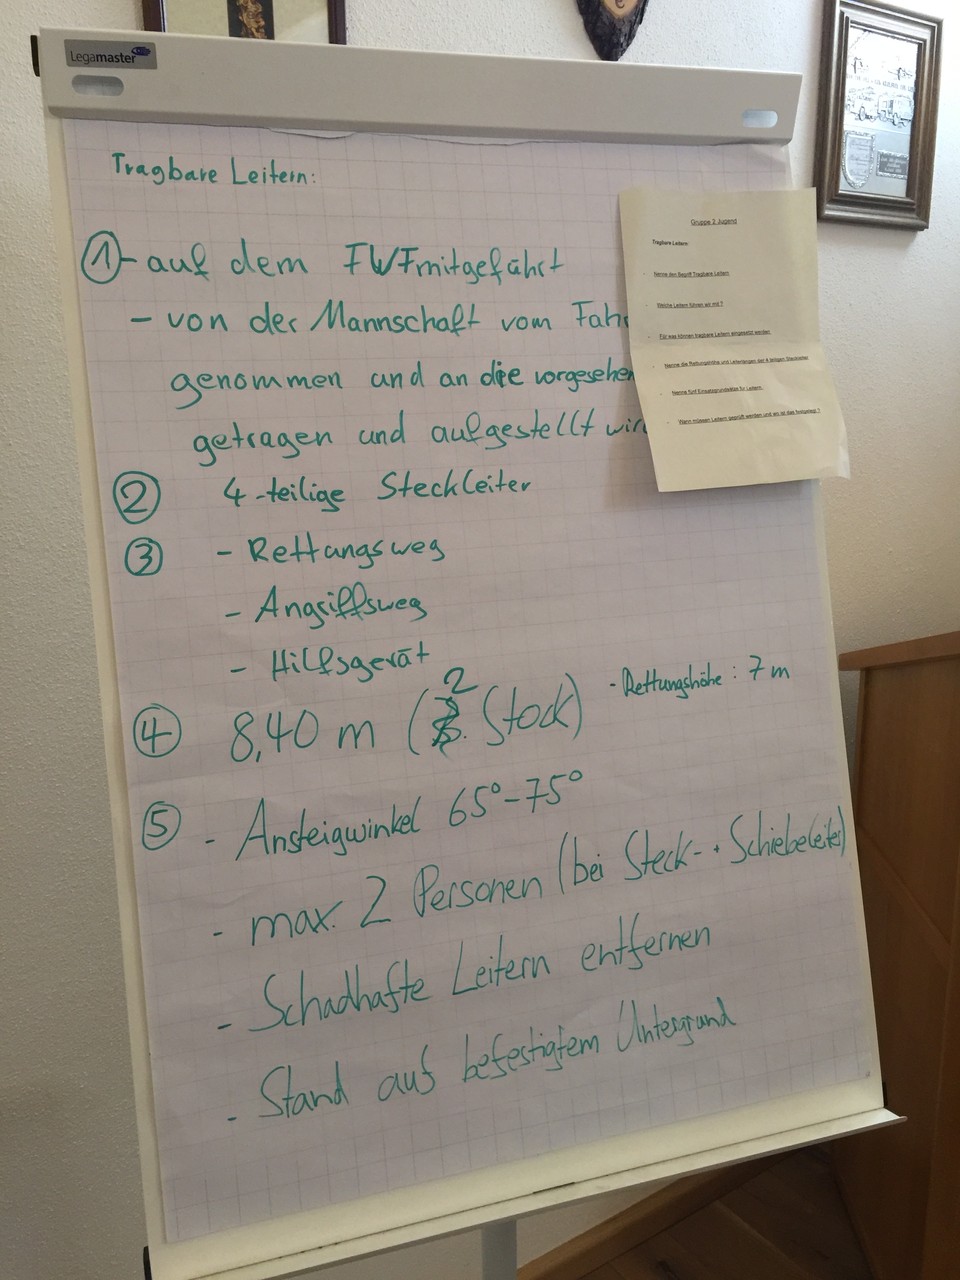 Legamaster
Tragbare Leitern:
① - auf dem FWF mitgeführt
- von der Mannschaft vom Fah
genommen und an die vorgesehen
getragen und aufgestellt wir
② 4-teilige Steckleiter
③ - Rettungsweg
- Angriffsweg
- Hilfsgerät
④ 8,40 m (2. Stock) - Rettungshöhe: 7 m
⑤ - Ansteigwinkel 65°-75°
- max. 2 Personen (bei Steck- + Schiebeleiter)
- Schadhafte Leitern entfernen
- Stand auf befestigtem Untergrund
Gruppe 2 Jugend
Tragbare Leitern:
- Nenne den Begriff Tragbare Leitern
- Welche Leitern führen wir mit ?
- Für was können tragbare Leitern eingesetzt werden
- Nenne die Rettungshöhe und Leiterlängen der 4 teiligen Steckleiter
- Nenne fünf Einsatzgrundsätze für Leitern.
- Wann müssen Leitern geprüft werden und wo ist das festgelegt ?